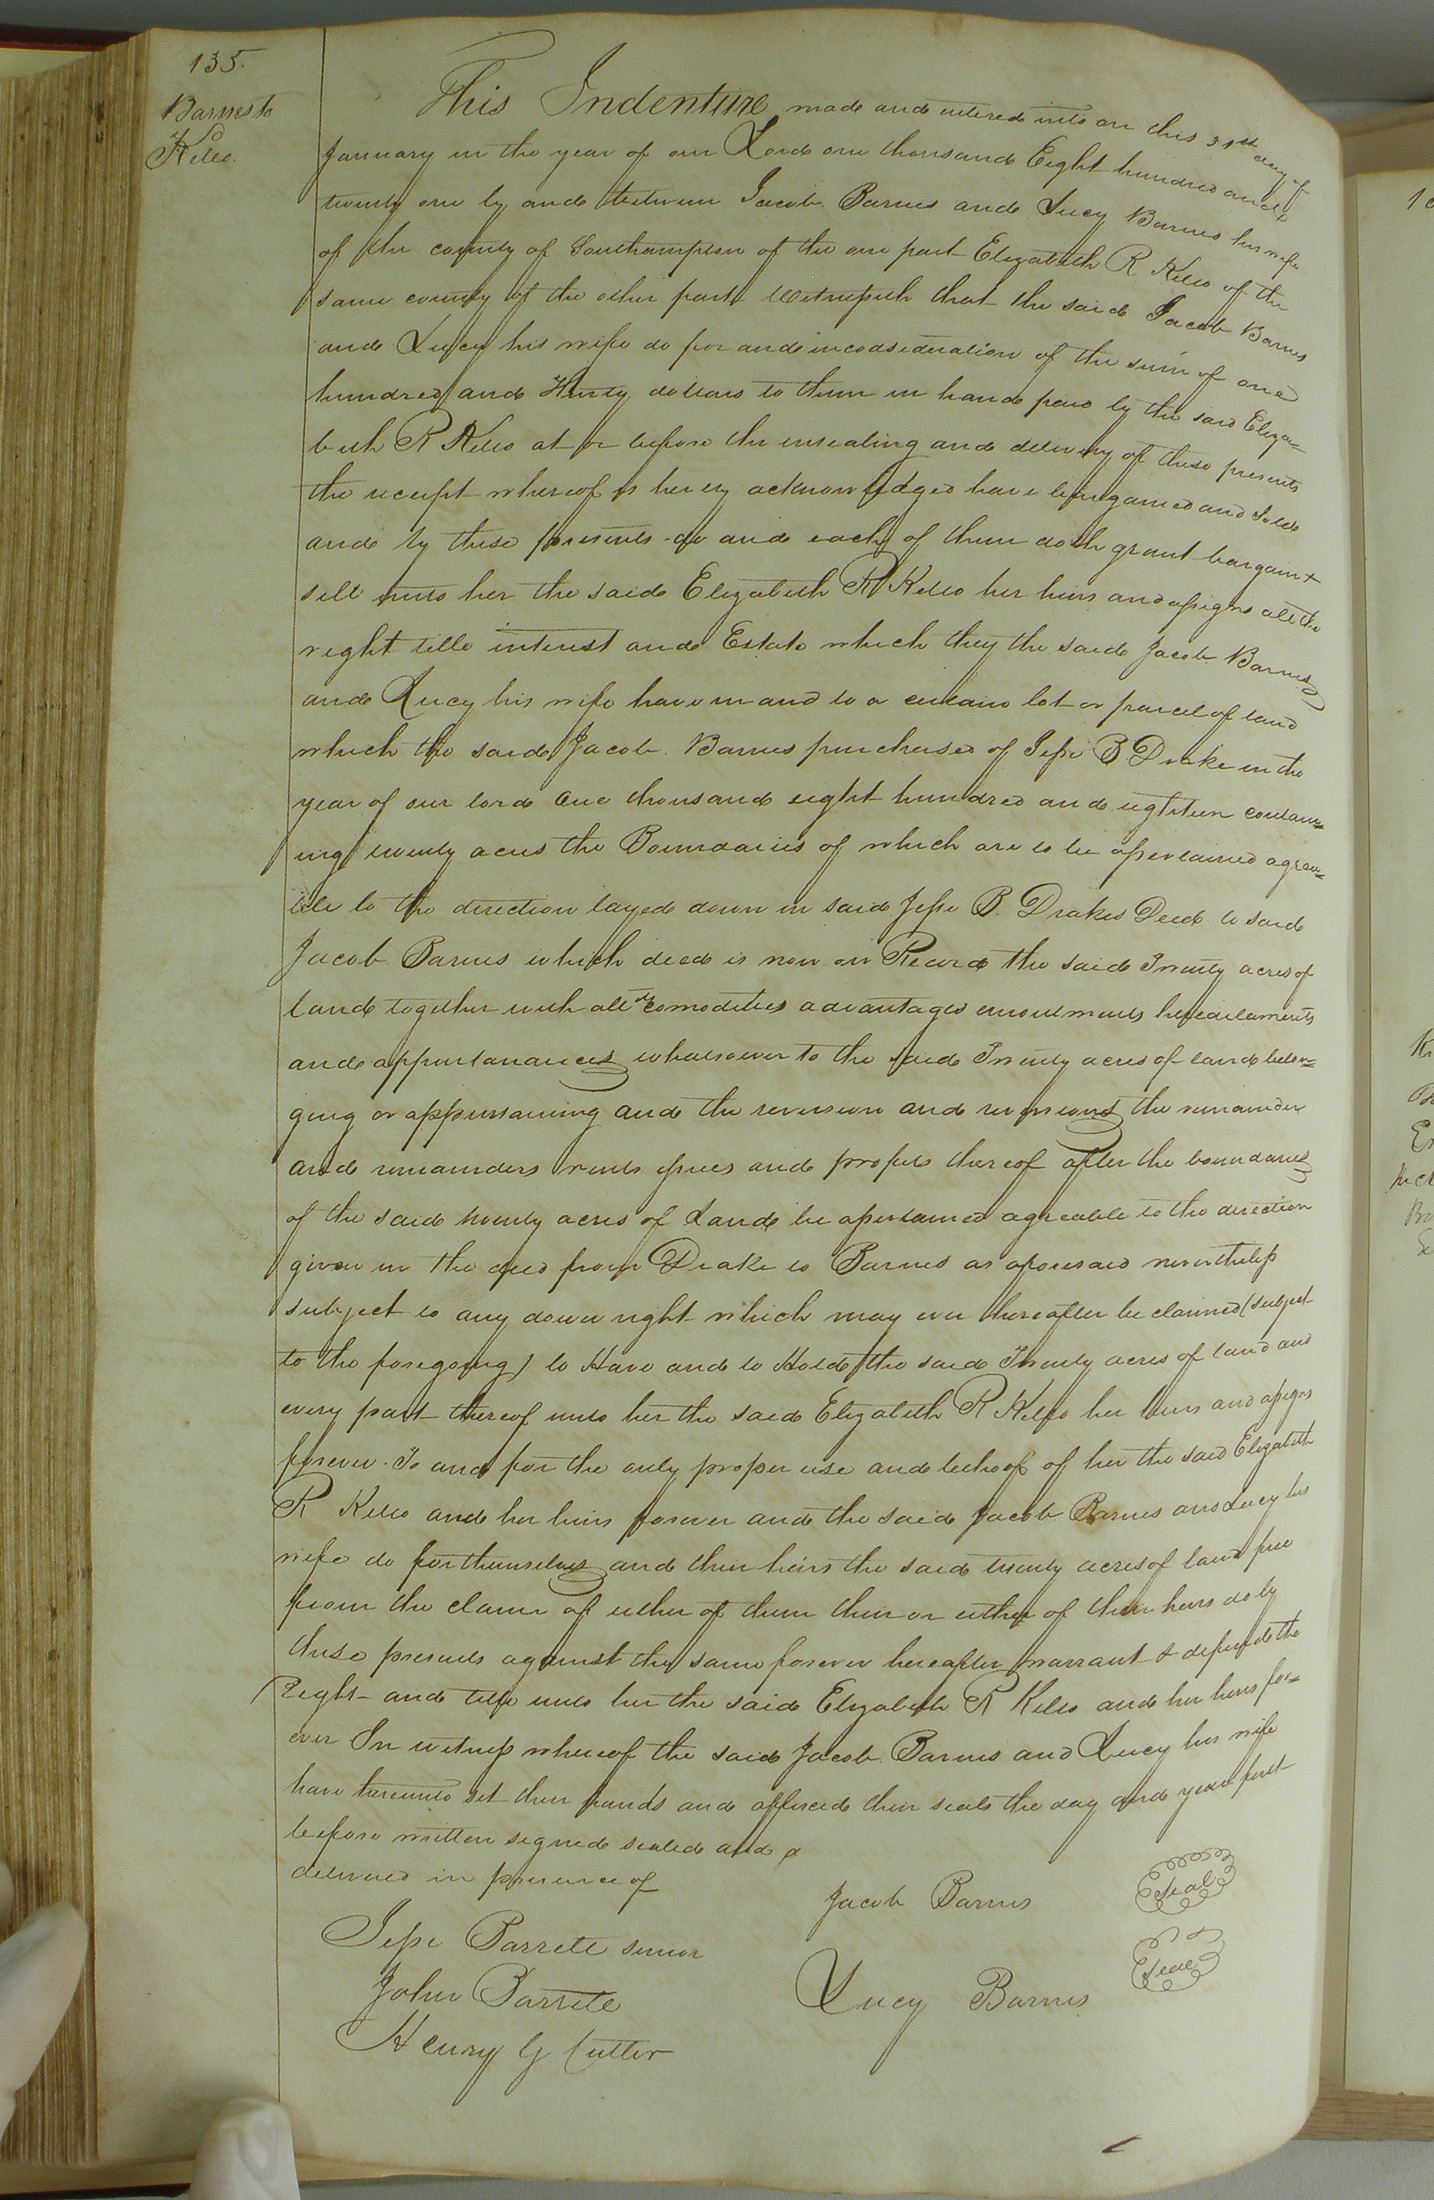 135.
Barnes to
Kello
This Indenture made and entered into on this 31st day of
January in the year of our Lord one thousand Eight hundred and
twenty one by and between Jacob Barnes and Lucy Barnes his wife
of the county of Southampton of the one part Elizabeth R Kello of the
same county of the other part Witnesseth that the said Jacob Barnes
and Lucy his wife do for and in consideration of the sum of one
hundred and thirty dollars to them in hand paid by the said Eliza=
beth R Kello at or before the ensealing and delivery of these presents
the receipt whereof is hereby acknowledged have bargained and Sold
and by these presents do and each of them doth grant bargain &
sell unto her the said Elizabeth R Kello her heirs and assigns all the
right title interest and Estate which they the said Jacob Barnes
and Lucy his wife have in and to a certain lot or parcel of land
which the said Jacob Barnes purchased of Jesse B Drake in the
year of our lord one thousand eight hundred and eighteen contain=
ing twenty acres the Boundaries of which are to be assertained agree=
ble to the direction layed down in said Jesse B. Drakes Deed to said
Jacob Barnes which deed is now on Record the said Twenty acres of
land together with all the comodities advantages emoluments hereditaments
and appurtanances whatsoever to the said Twenty acres of land belon=
ging or appurtaining and the reversion and reversions the remainder
and remainders rents issues and profits thereof after the boundaries
of the said twenty acres of Land be assertained agreable to the direction
given in the deed from Drake to Barnes as aforesaid nevertheless
subject to any dower right which may ever thereafter be claimed (subject
to the foregoing) to Have and to Hold the said Twenty acres of land and
every part thereof unto her the said Elizabeth R Kello her heirs and assigns
forever. To and for the only proper use and behoof of her the said Elizabeth
R Kello and her heirs forever and the said Jacob Barnes and Lucy his
wife do for themselves and their heirs the said twenty acres of land free
from the claim of either of them their or either of their heirs do by
these presents against the same forever hereafter warrant & defend the
Right and title unto her the said Elizabeth R Kello and her heirs for=
ever In witness whereof the said Jacob Barnes and Lucy his wife
have hereunto set their hands and affixed their seals the day and year first
before written signed sealed and
delivered in presence of
Jacob Barnes Seal
Jesse Barrett senior
John Barrett
Lucy Barnes Seal
Henry G Cutler